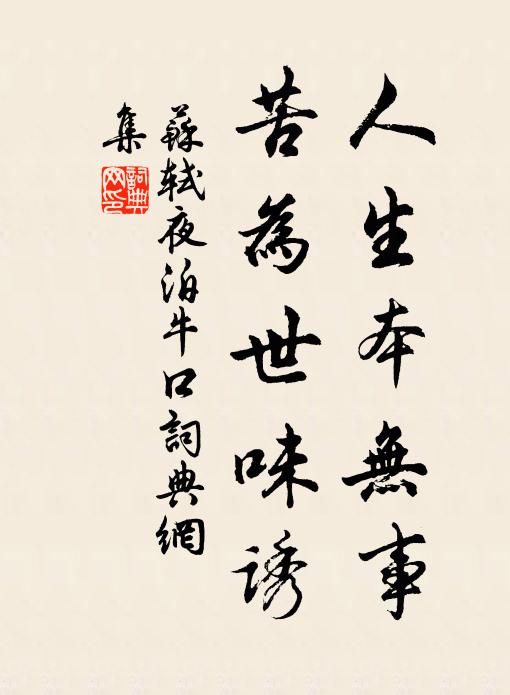 人生本無事
苦為世味誘
蘇軾夜泊牛口詞典網
集
詞典
网印